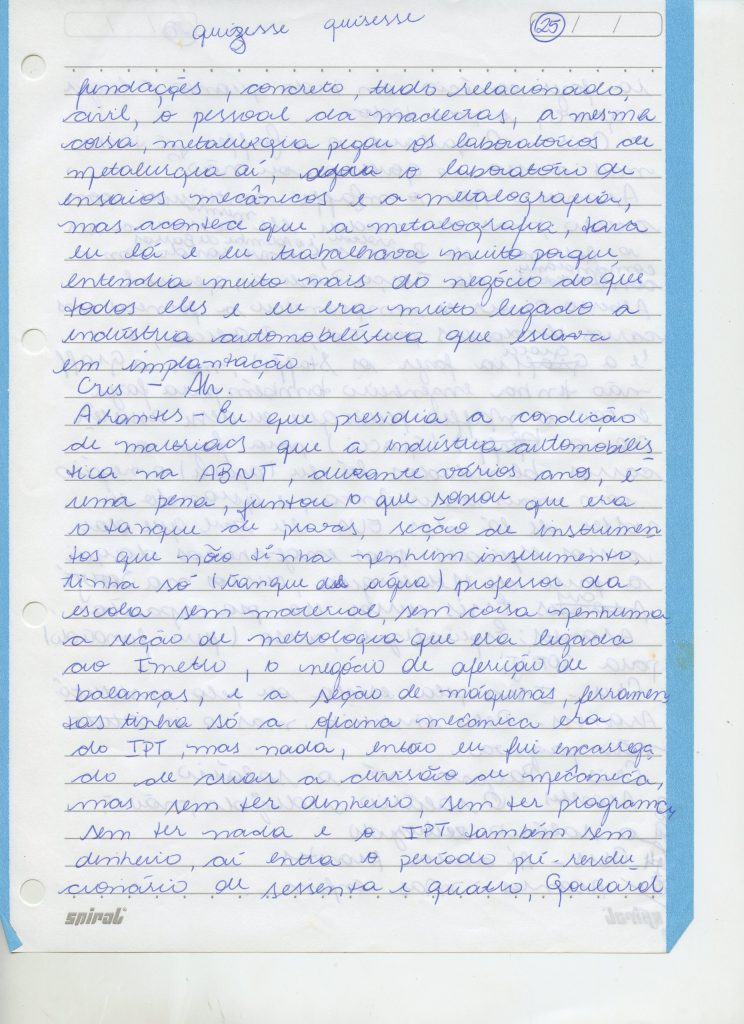 quizesse quisesse
25 / /
fundações, concreto, tudo relacionado,
civil, o pessoal da madeiras, a mesma
coisa, metalurgia pegou os laboratórios de
metalurgia aí, agora o laboratório de
ensaios mecânicos e a metalografia,
mas acontece que a metalografia, tava
eu lá e eu trabalhava muito porque
entendia muito mais do negócio do que
todos eles e eu era muito ligado a
indústria automobilística que estava
em implantação.
Cris - Ah.
Arantes - Eu que presidia a condição
de materiais que a indústria automobilís
tica na ABNT, durante vários anos, é
uma pena, juntou o que sobou que era
o tanque de provas, secção de instrumen
tos que não tinha nenhum instrumento,
tinha só (tanque de água) professor da
escola sem material, sem coisa nenhuma
a seção de metrologia que era ligada
ao Imetro, o negócio de aferição de
balanças, e a seção de máquinas, ferramen
tas tinha só a oficina mecânica era
do IPT, mas nada, então eu fui encarrega
do de criar a divisão de mecânica,
mas sem ter dinheiro, sem ter programa,
sem ter nada e o IPT também sem
dinheiro, aí entra o período pré-revolu
cionário de sessenta e quatro, Goulard
spiral